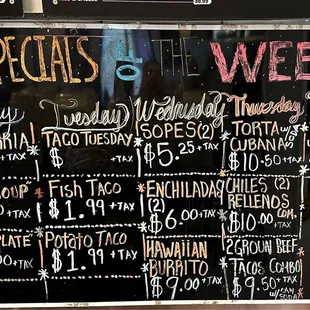 SPECIALS OF THE WEE
Tuesday
TACO TUESDAY
$ +TAX
Fish Taco
$1.99 +TAX
Potato Taco
$1.99 +TAX
Wednesday
SOPES (2)
$5.25 +TAX
ENCHILADAS
(2)
$6.00 +TAX
HAWAIIAN
BURRITO
$9.00 +TAX
Thursday
TORTA w/S
CUBANA
$10.50 +TAX
CHILES (2)
RELLENOS
COM
$10.00 +TAX
2 GROUN BEEF
TACOS COMBO
$9.50 +TAX
w/CAN
SODA
RIA
+TAX
OUP
+TAX
PLATE
00 +TAX